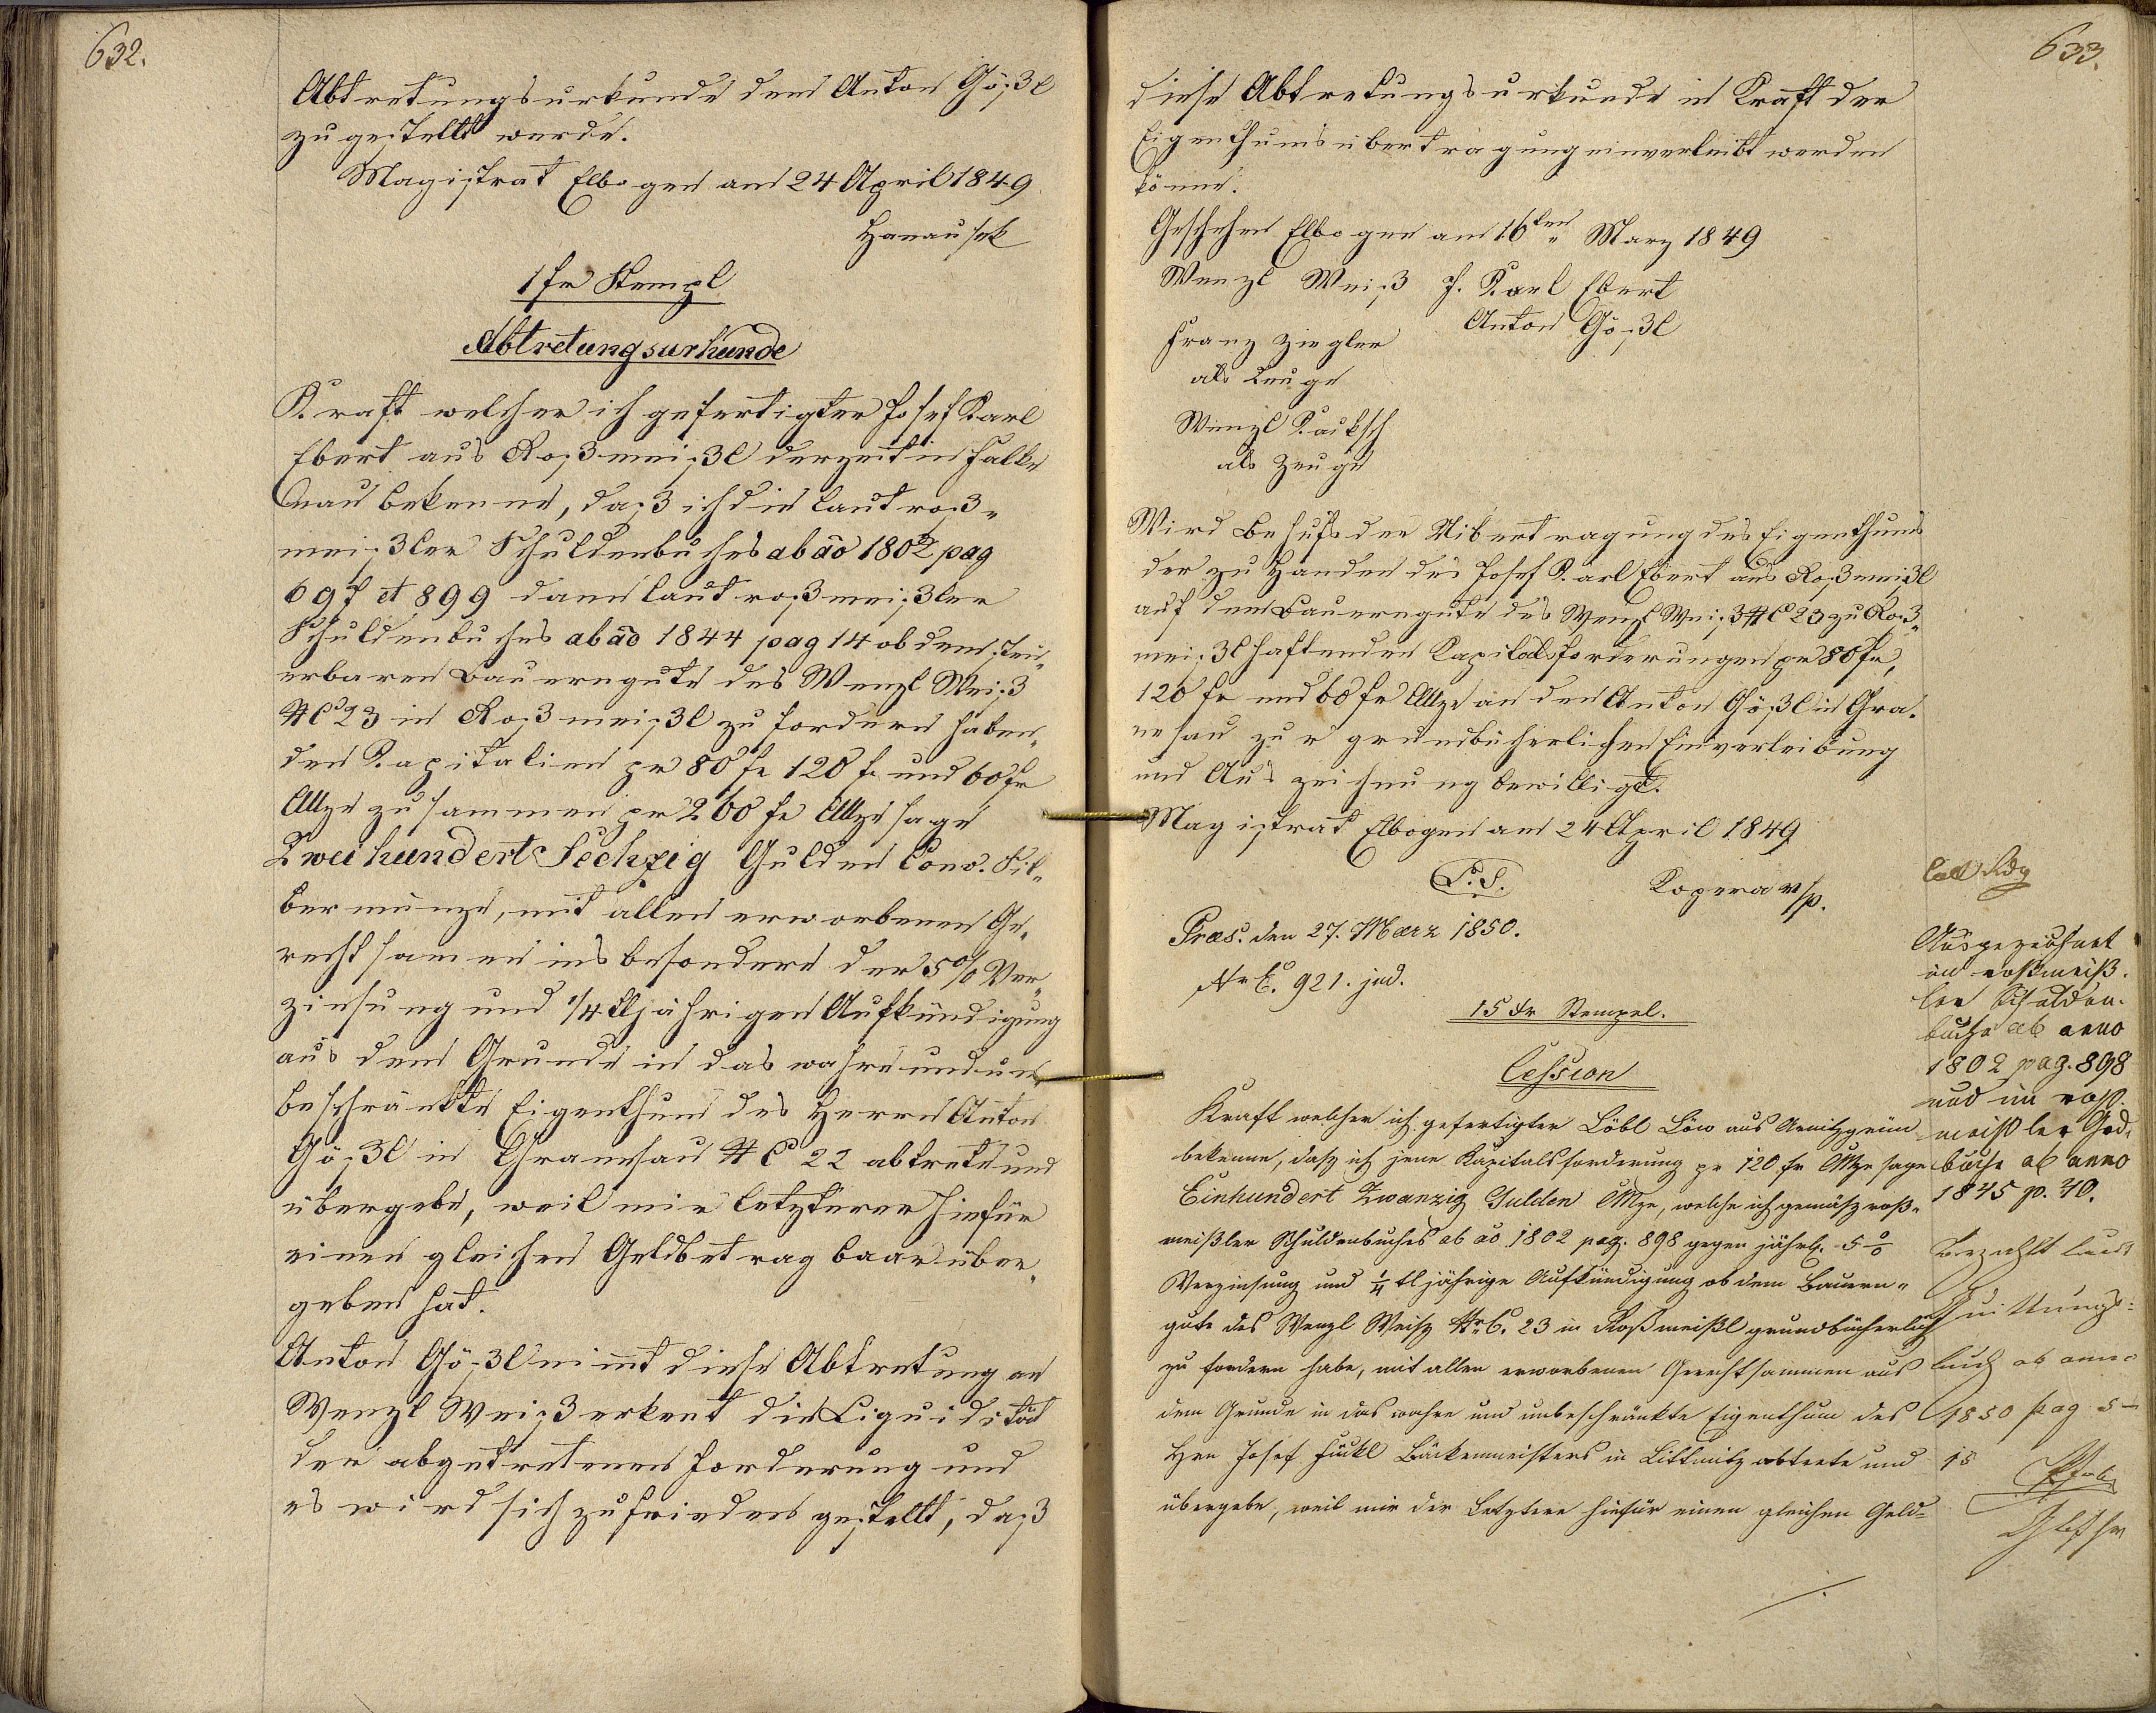 632.
Abtretungsurkunde dem Anton Gößl
zugestellt werde.
Magistrat Elbogen am 24 April 1849
Hanausek
1 fr Stempl
Abtretungsurkunde
Kraft welcher ich gefertigter Josef Karl
Ebert aus Roßmeißl derzeit in Falke
nau bekenne, daß ich die laut roß-
meißler Schuldenbuches ab ao 1802 pag
697 et 899 dann laut roßmeißler
Schuldenbuches ab ao 1844 pag 14 ob dem steu-
erbaren Bauerngute des Wenzl Weiß
NC 23 in Roßmeißl zu fordern haben-
den Kapitalien pr 80 fr 120 fr und 60 fr
CMze zusammen pr 260 fr CMze sage
Zweihundert Sechzig Gulden Conv. Sil-
bermünze, mit allen erworbenen Ge-
rechtsamen insbesondere der 5% Ver-
zinsung und 1/4 tljährigen Aufkündigung
aus dem Grunde in das wahre und un-
beschränkte Eigenthum des Herrn Anton
Gößl in Granesau NC 22 abtrete und
übergebe, weil mir letzterer hiefür
einen gleichen Geldbetrag baar über-
geben hat.
Anton Gößl nimt diese Abtretung an
Wenzl Weiß erkent die Liquidität
der abgetretenen Forderung und
es wird sich zufrieden gestellt, daß
633.
diese Abtretungsurkunde in Kraft der
Eigenthumsübertragung einverleibt werden
könne.
Geschehen Elbogen am 16ten März 1849
Wenzl Weiß J. Karl Ebert
Anton Gößl
Franz Ziegler
als Zeuge
Wenzl Kauksch
als Zeuge
Wird Behufs der Uibertragung des Eigenthums
der zu Handen des Josef Karl Ebert aus Roßmeißl
auf dem Bauerngute des Wenzl Weiß NC 23 zu Roß-
meißl haftenden Kapitalsforderungen pr 80 fr,
120 fr und 60 fr CMze an den Anton Gößl in Gra-
nesau zur grundbücherlichen Einverleibung
und Auszeichnung bewilligt.
Magistrat Elbogen am 24 April 1849
L.S. Kopera m/p.
Praes. den 27. März 1850.
NrE. 921. jud.
15 Xr Stempel.
Cession
Kraft welcher ich gefertigter Löbl Löw aus Arnitzgrün
bekenne, dasz ich jene Kapitalsforderung pr 120 fr CMze sage
Einhundert Zwanzig Gulden CMze, welche ich gemäsz roß-
meißler Schuldenbuches ab ao 1802 pag. 898 gegen jährl. 5%
Verzinsung und 1/4 tljährige Aufkündigung ob dem Bauern-
gute des Wenzl Weisz NrC. 23 in Roßmeißl grundbücherlich
zu fordern habe, mit allen erworbenen Gerechtsammen aus
dem Grunde in das wahre und unbeschränkte Eigenthum des
Hrn Josef Fückl Bäckenmeisters in Littmitz abtrete und
übergebe, weil mir der Letztere hiefür einen gleichen Geld-
Ausgezeichnet
im roßmeiß-
ler Schulden-
buche ab anno
1802 pag. 898
und im roß-
meißler Gd-
buche ab anno
1845 p. 40.
Bezahlt laut
Quittungs-
buch ab anno
1850 pag 5